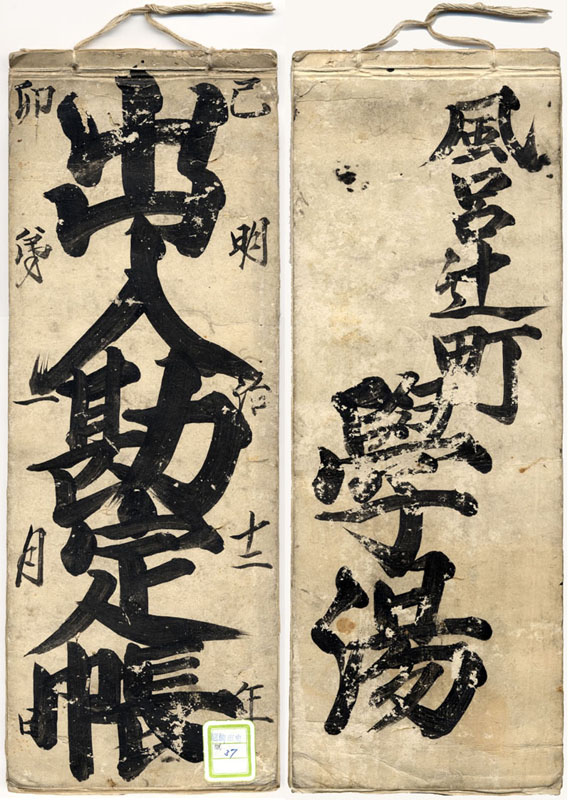 己明治十二年
出入勘定帳
卯歳一月日
27
風呂辻町
學湯